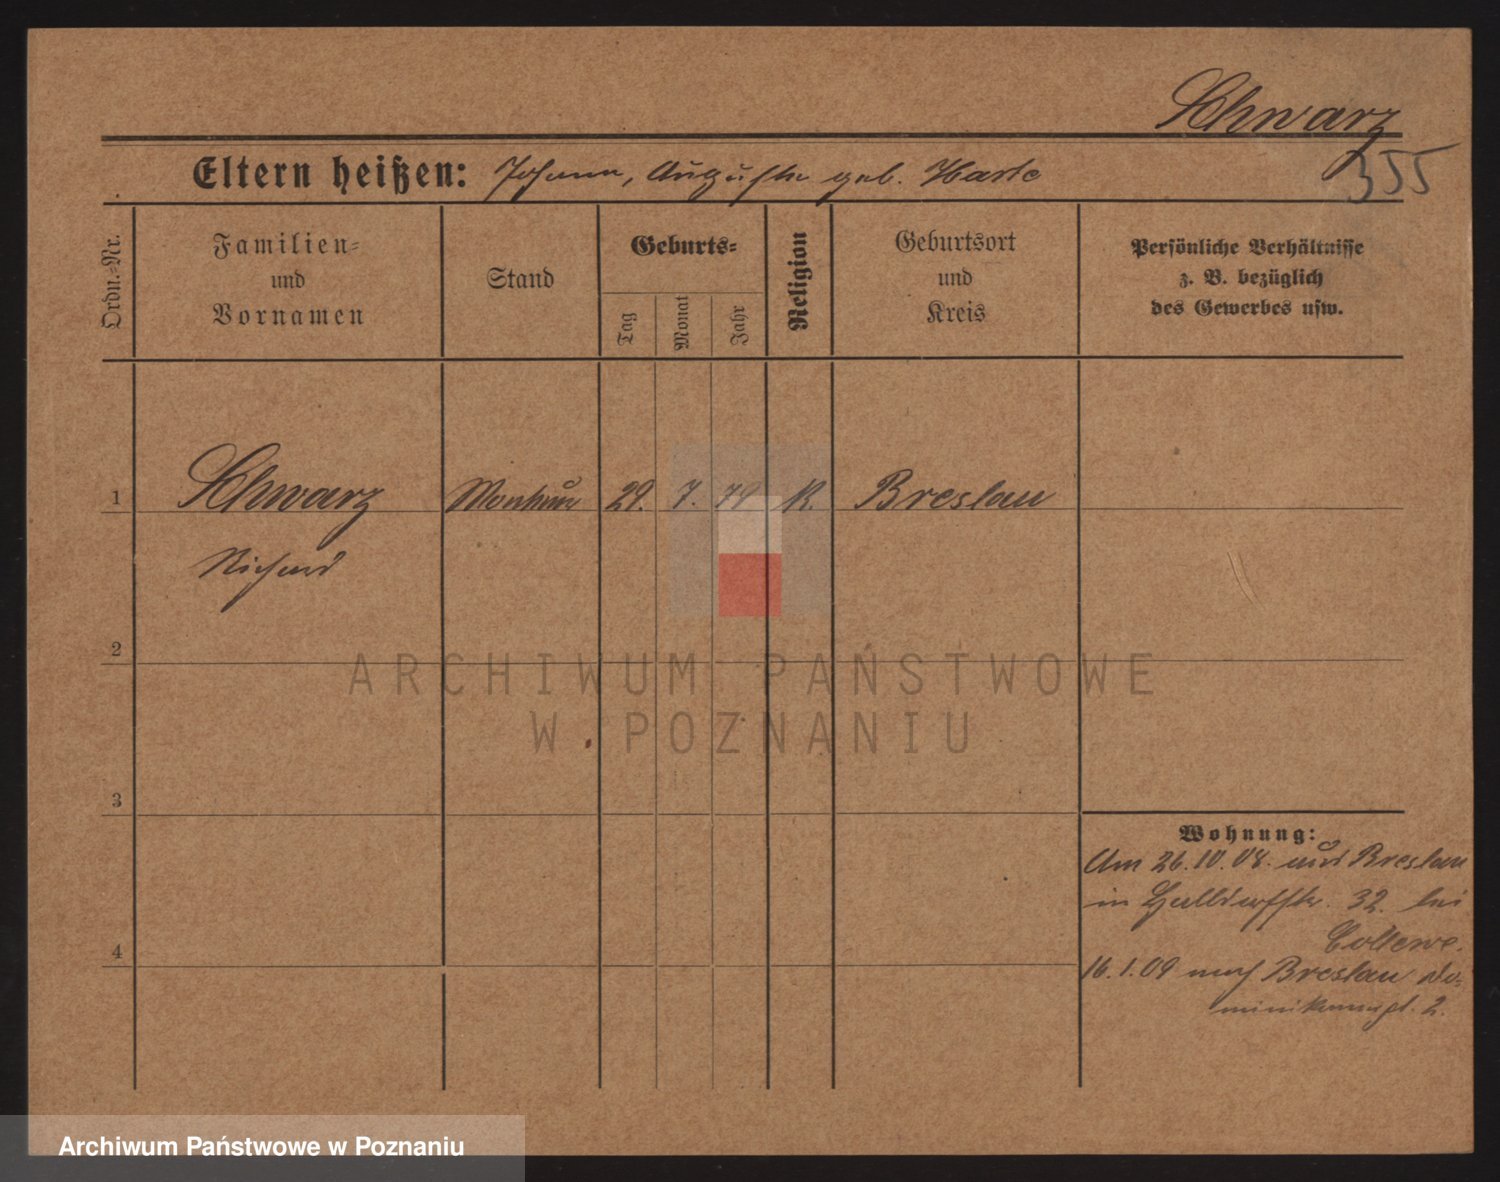 Schwarz
355
Eltern heißen: Johann, Auguste geb. Harte
Ordn.-Nr.
Familien-
und
Vornamen
Stand
Geburts-
Tag
Monat
Jahr
Religion
Geburtsort
und
Kreis
Persönliche Verhältnisse
z. B. bezüglich
des Gewerbes usw.
1 Schwarz Monteur 29. 7. 79 K. Breslau
Richard
2
3
4
Wohnung:
Am 26.10.08. aus Breslau
in 32. bei
16.1.09 nach Breslau Do-
minikanerpl. 2.
ARCHIWUM PAŃSTWOWE
W POZNANIU
Archiwum Państwowe w Poznaniu